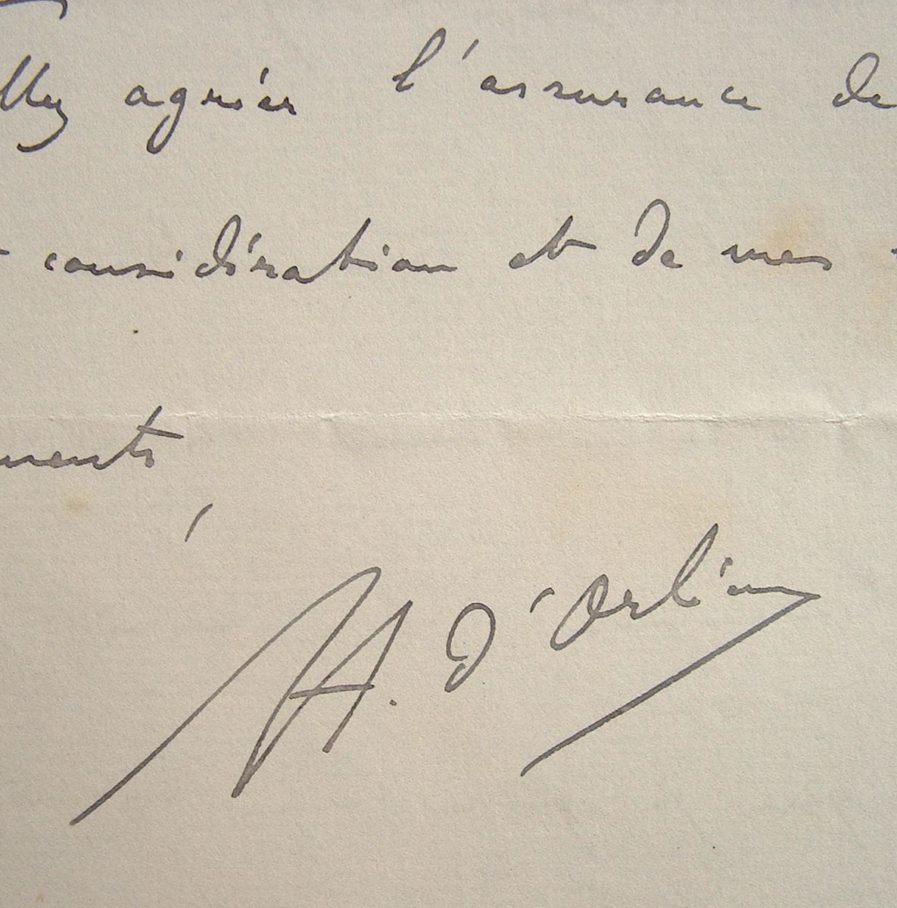 llez agréer l'assurance de
considération et de mes
ments
H. d'Orléans